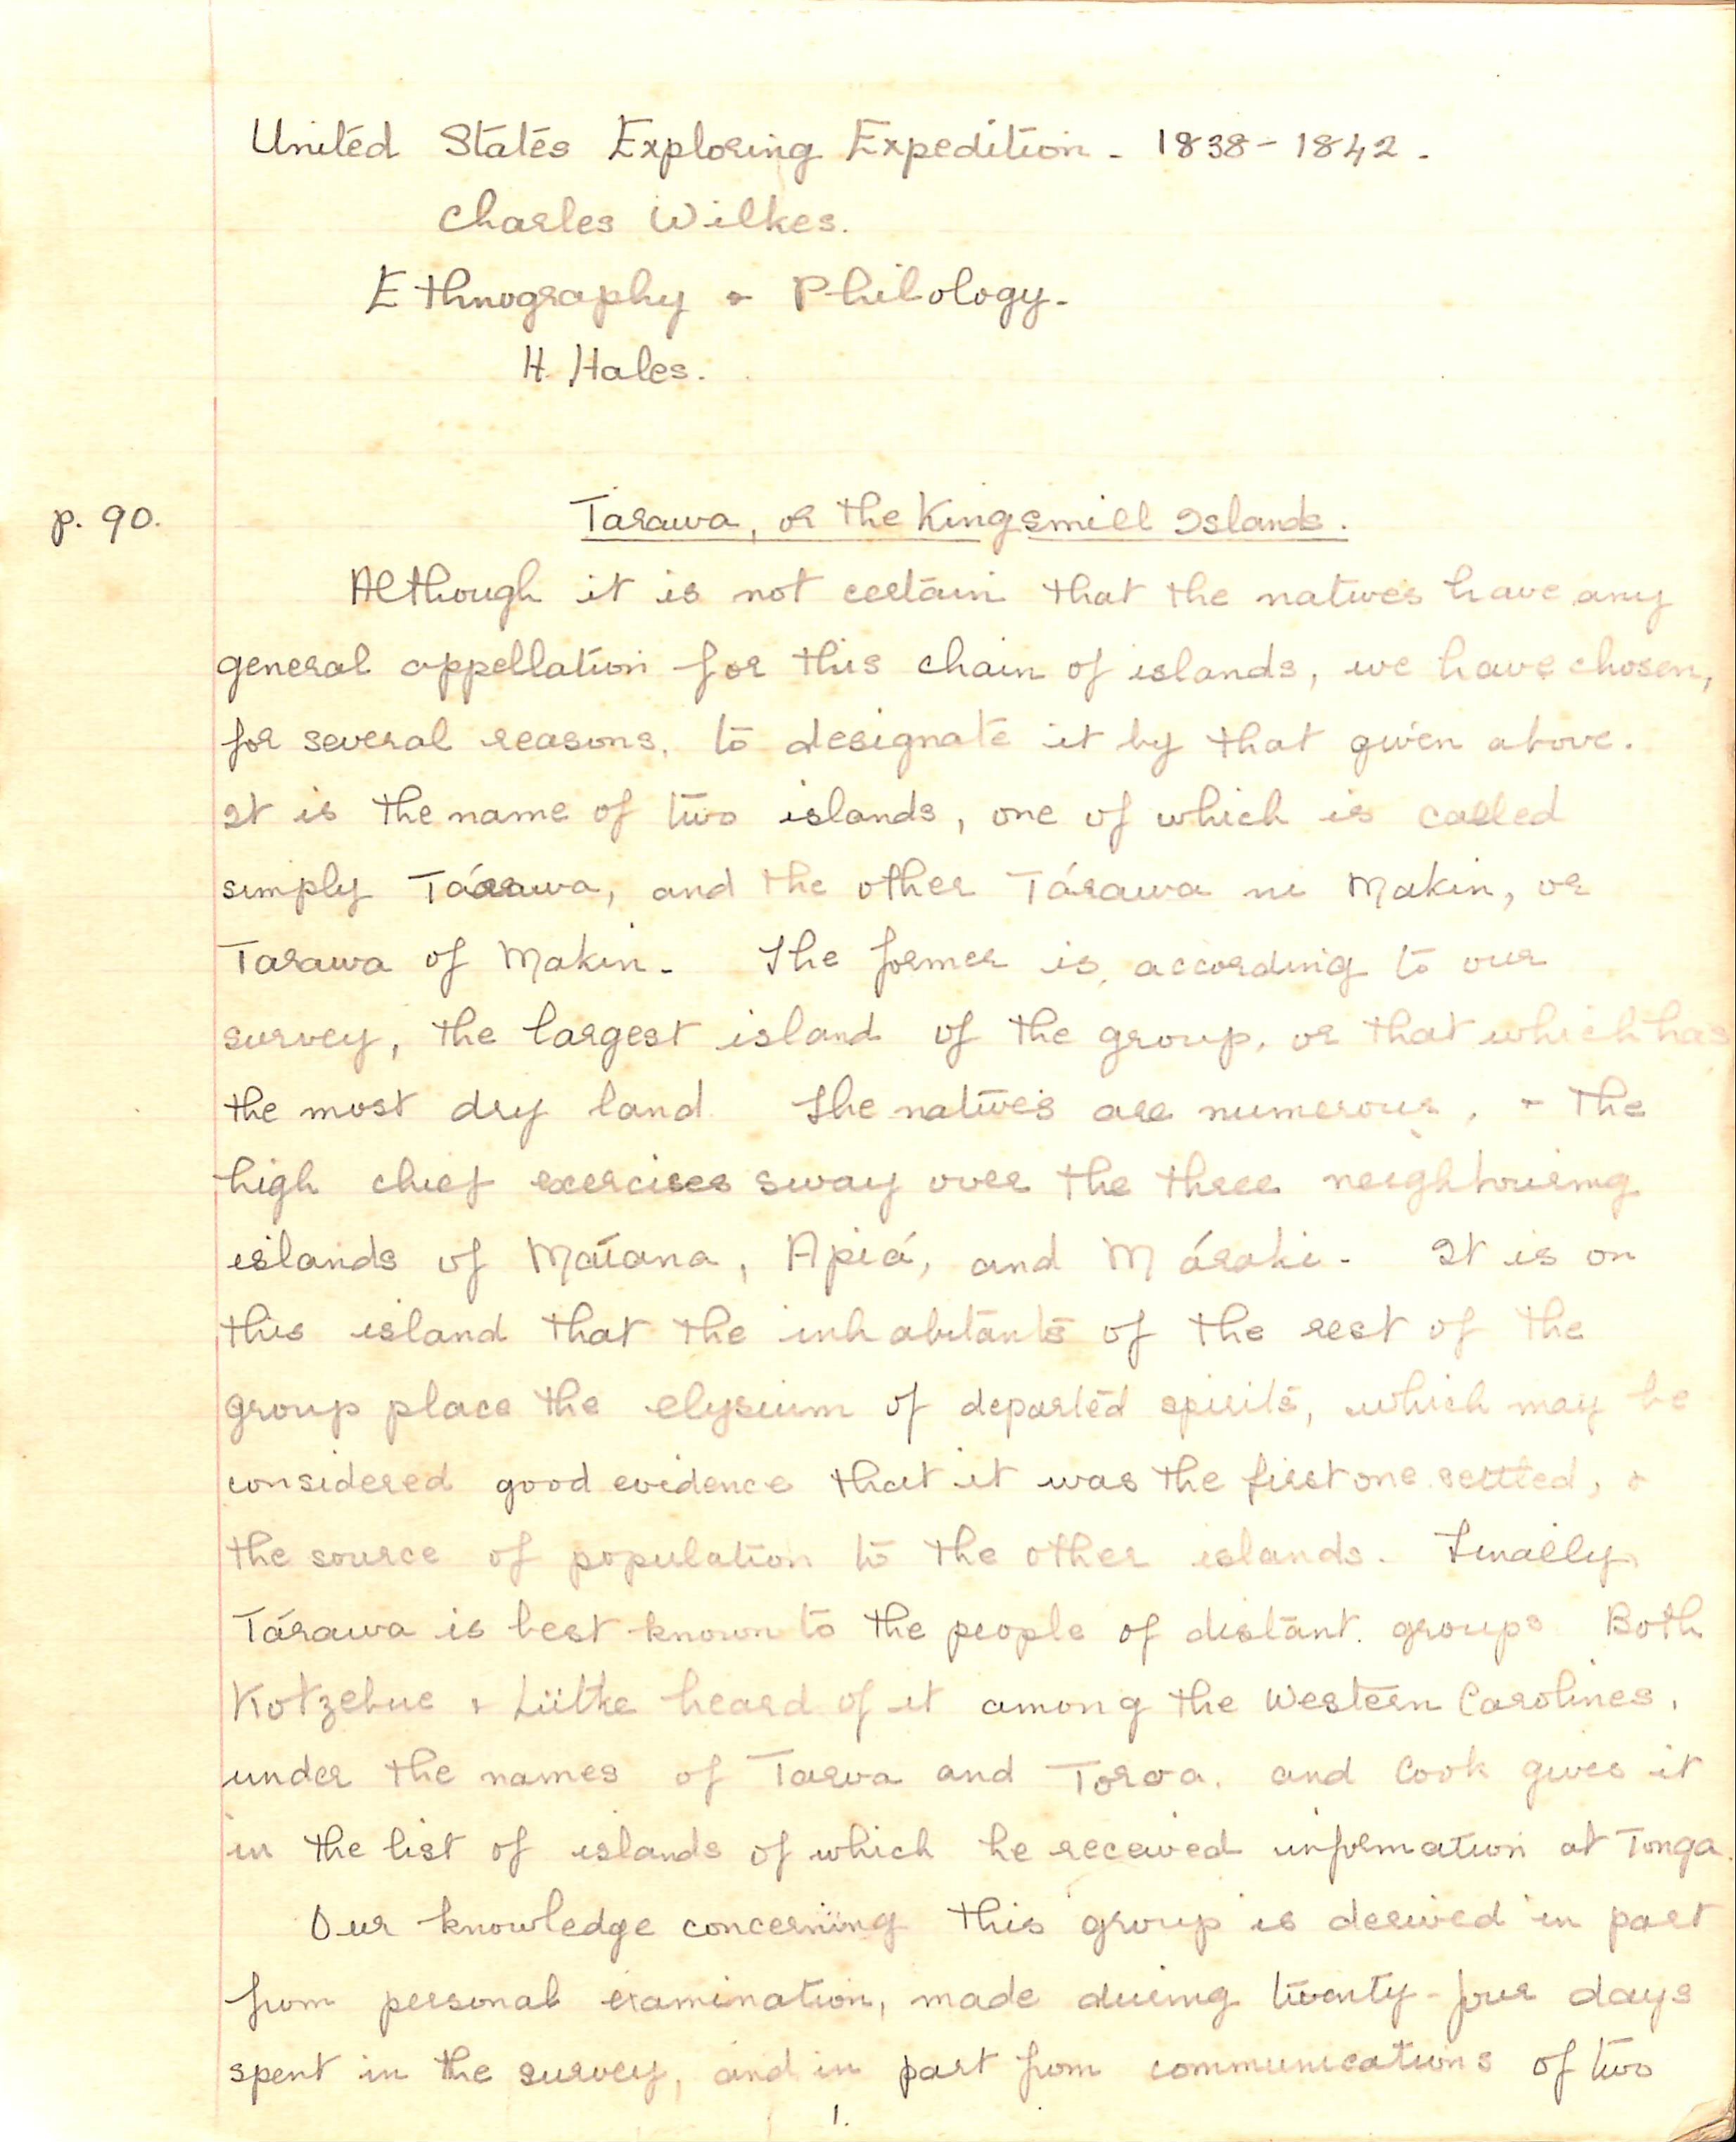 United States Exploring Expedition - 1838-1842.
Charles Wilkes.
Ethnography & Philology.
H. Hales.
p. 90. Tarawa, or the Kingsmill Islands.
Although it is not certain that the natives have any
general appellation for this chain of islands, we have chosen,
for several reasons, to designate it by that given above.
It is the name of two islands, one of which is called
simply Tárawa, and the other Tárawa ni Makin, or
Tarawa of Makin. The former is, according to our
survey, the largest island of the group, or that which has
the most dry land. The natives are numerous, & the
high chief exercises sway over the three neighbouring
islands of Maíana, Apiá, and Máraki. It is on
this island that the inhabitants of the rest of the
group place the elysium of departed spirits, which may be
considered good evidence that it was the first one settled, &
the source of population to the other islands. Finally,
Tárawa is best known to the people of distant groups. Both
Kotzebue & Lütke heard of it among the Western Carolines,
under the names of Tarva and Toroa, and Cook gives it
in the list of islands of which he received information at Tonga.
Our knowledge concerning this group is derived in part
from personal examination, made during twenty-four days
spent in the survey, and in part from communications of two
1.